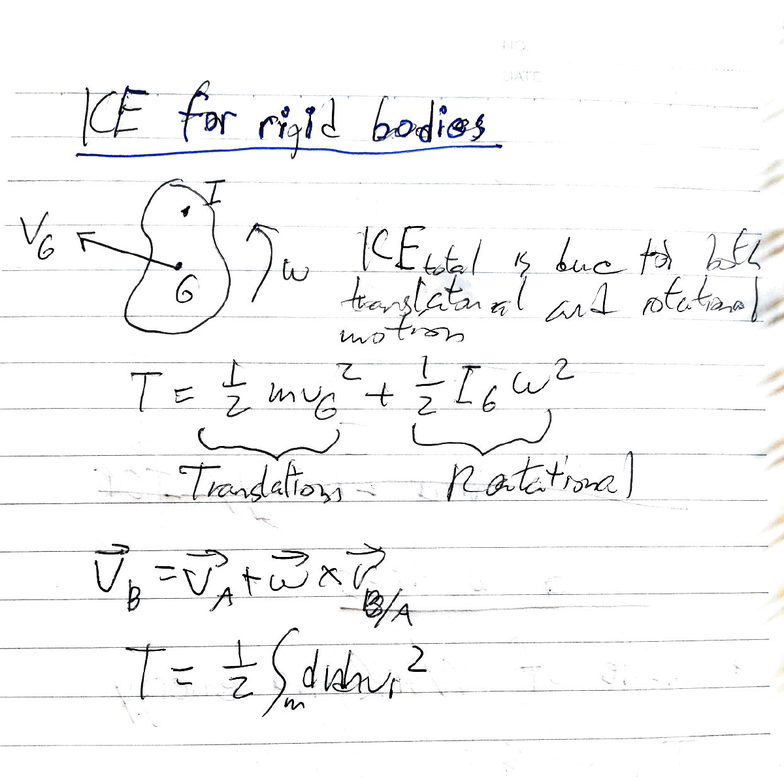 NO.
DATE
KE for rigid bodies
I
V_G
G
ω
KE_total is due for both
translational and rotational
motion
T = 1/2 mv_G^2 + 1/2 I_G ω^2
Translations
Rotational
\vec{V}_B = \vec{V}_A + \vec{ω} × \vec{r}_{B/A}
T = 1/2 ∫_m